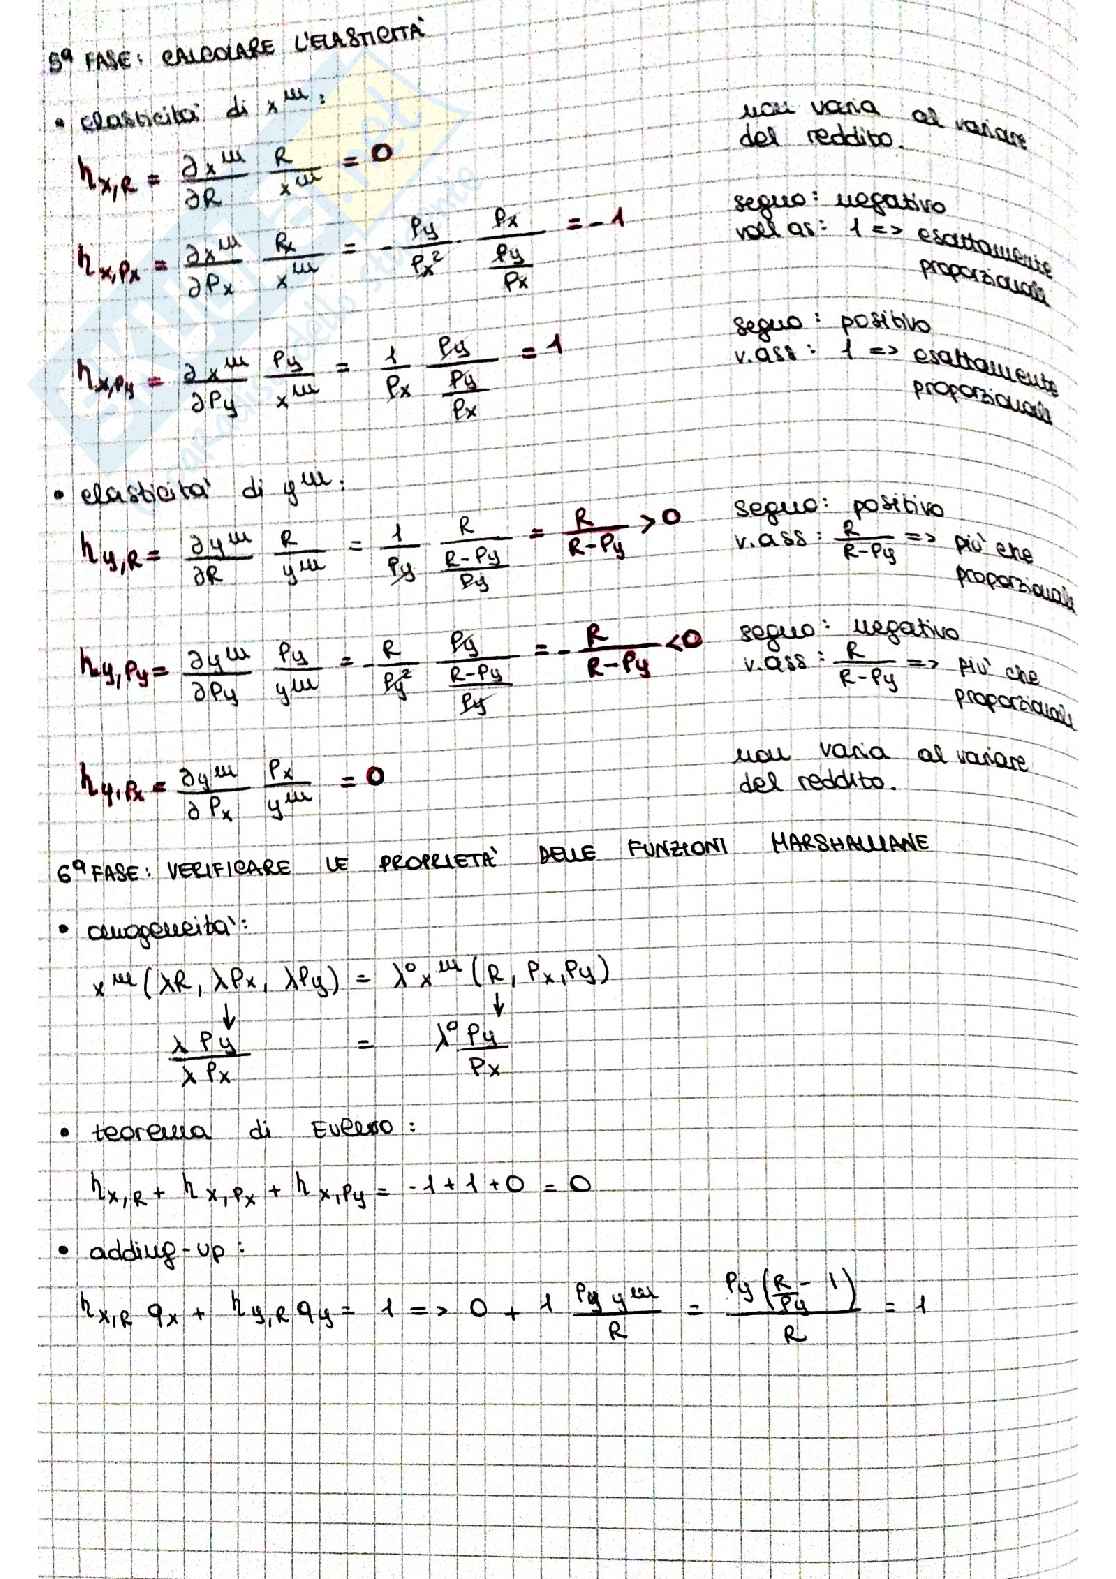 5ª FASE: CALCOLARE L'ELASTICITÀ
• elasticità di xᵐ:
η x,R = ∂xᵐ/∂R R/xᵐ = 0 non varia al variare del reddito.
η x,Px = ∂xᵐ/∂Px Px/xᵐ = - Py/Px² Px/(Py/Px) = -1 segno: negativo
val as: 1 => esattamente proporzionali
η x,Py = ∂xᵐ/∂Py Py/xᵐ = 1/Px Py/(Py/Px) = 1 segno: positivo
v.ass: 1 => esattamente proporzionali
• elasticità di yᵐ:
η y,R = ∂yᵐ/∂R R/yᵐ = 1/Py R/((R-Py)/Py) = R/(R-Py) > 0 segno: positivo
v.ass: R/(R-Py) => più che proporzionali
η y,Py = ∂yᵐ/∂Py Py/yᵐ = - R/Py² Py/((R-Py)/Py) = - R/(R-Py) < 0 segno: negativo
v.ass: R/(R-Py) => più che proporzionali
η y,Px = ∂yᵐ/∂Px Px/yᵐ = 0 non varia al variare del reddito.
6ª FASE: VERIFICARE LE PROPRIETÀ DELLE FUNZIONI MARSHALLIANE
• omogeneità:
xᵐ (λR, λPx, λPy) = λ⁰ xᵐ (R, Px, Py)
↓ ↓
λPy/λPx = λ⁰ Py/Px
• teorema di Eulero:
η x,R + η x,Px + η x,Py = -1 + 1 + 0 = 0
• adding-up:
η x,R qx + η y,R qy = 1 => 0 + 1 Py yᵐ/R = Py(R/Py - 1)/R = 1